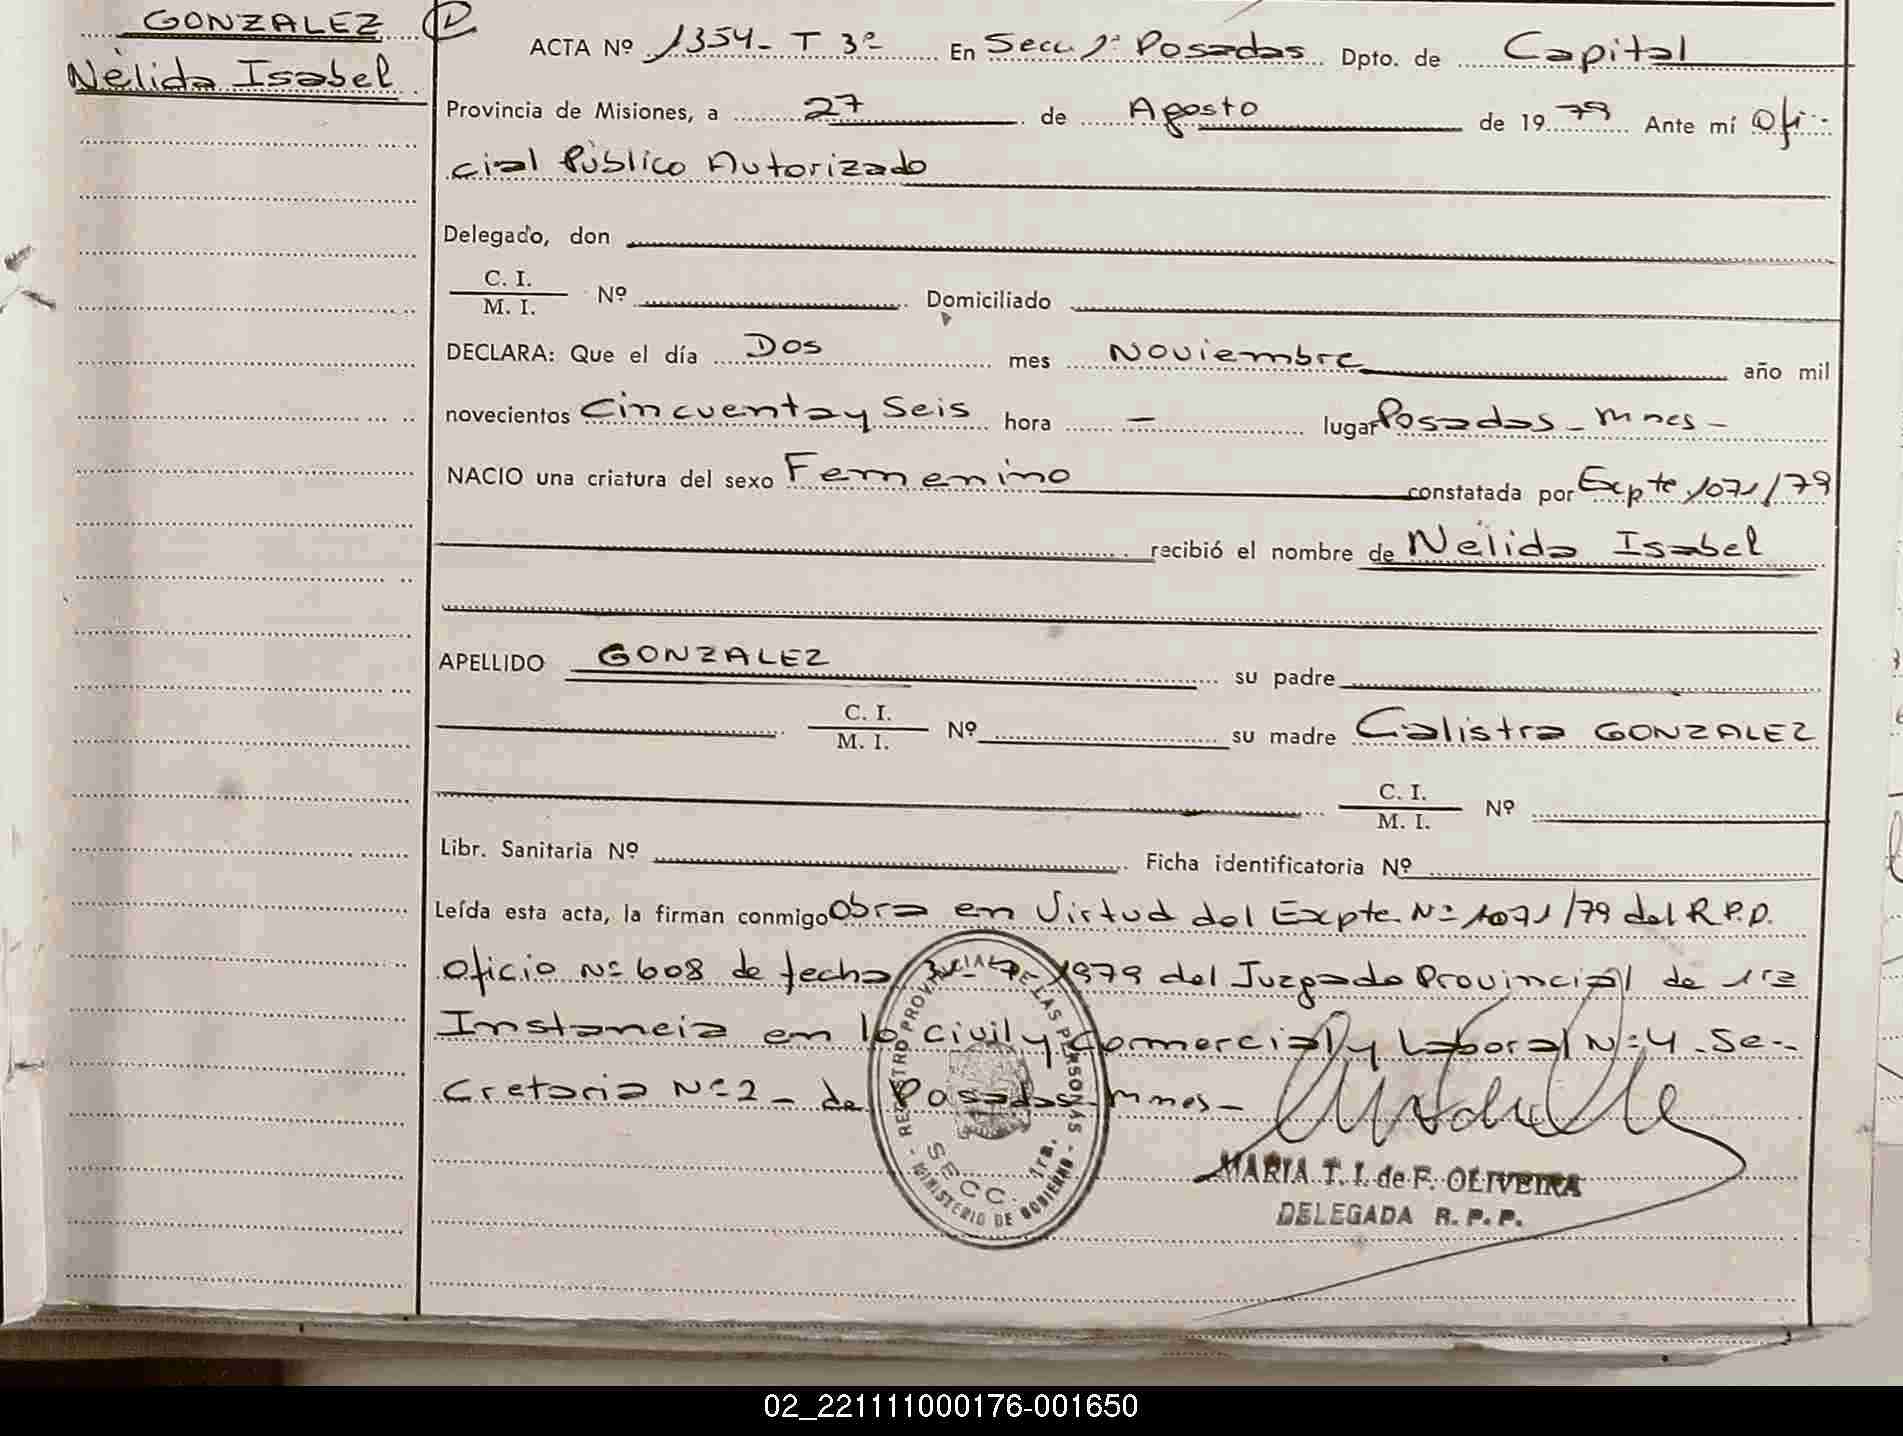 GONZALEZ
Nélida Isabel
ACTA Nº 1354- T 3º En Secc. 1ª Posadas Dpto. de Capital
Provincia de Misiones, a 27 de Agosto de 1979 Ante mí Ofi-
cial Público Autorizado
Delegado, don
C. I.
M. I. Nº Domiciliado
DECLARA: Que el día Dos mes Noviembre año mil
novecientos Cincuenta y Seis hora - lugar Posadas - Mnes -
NACIO una criatura del sexo Femenino constatada por Expte 1071/79
recibió el nombre de Nélida Isabel
APELLIDO GONZALEZ su padre
C. I.
M. I. Nº su madre Calistra GONZALEZ
C. I.
M. I. Nº
Libr. Sanitaria Nº Ficha identificatoria Nº
Leída esta acta, la firman conmigo Obra en Virtud del Expte. Nº 1071/79 del R.P.P.
Oficio Nº 608 de fecha 7 1979 del Juzgado Provincial de 1ra
Instancia en lo civil y Comercial y Laboral Nº 4 - Se-
cretaria Nº 2 - de Posadas - Mnes -
REGISTRO PROVINCIAL DE LAS PERSONAS
SECC. 1ra.
- MINISTERIO DE GOBIERNO -
MARIA T. I. de F. OLIVEIRA
DELEGADA R. P. P.
02_221111000176-001650